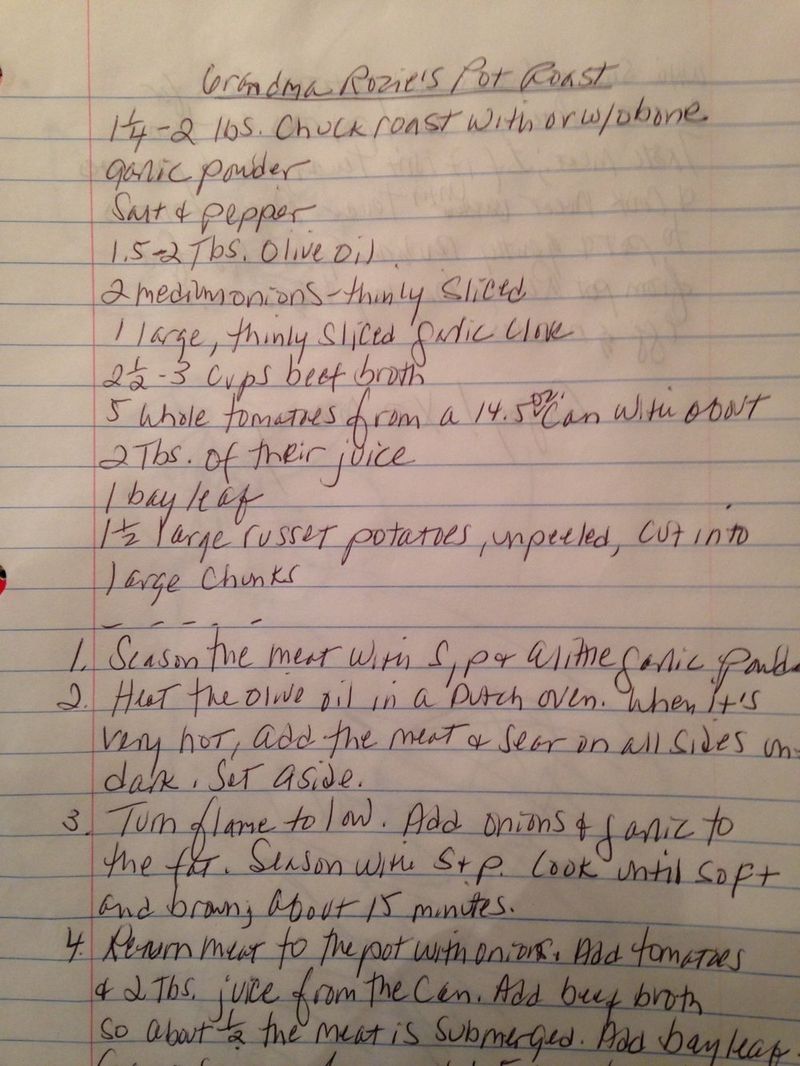 Grandma Rozie's Pot Roast
1 1/4-2 lbs. Chuck roast with or w/o bone
garlic powder
Salt & pepper
1.5-2 Tbs. Olive oil
2 medium onions-thinly sliced
1 large, thinly sliced garlic clove
2 1/2-3 cups beef broth
5 whole tomatoes from a 14.5 oz can with about
2 Tbs. of their juice
1 bay leaf
1 1/2 large russet potatoes, unpeeled, cut into
large chunks
1. Season the meat with S, p & a little garlic powde
2. Heat the olive oil in a Dutch oven. When it's
very hot, add the meat & sear on all sides un-
dark. Set aside.
3. Turn flame to low. Add onions & garlic to
the fat. Season with S+p. Cook until soft
and brown; about 15 minutes.
4. Return meat to the pot with onions. Add tomatoes
& 2 Tbs. juice from the can. Add beef broth
so about 1/2 the meat is submerged. Add bay leaf.